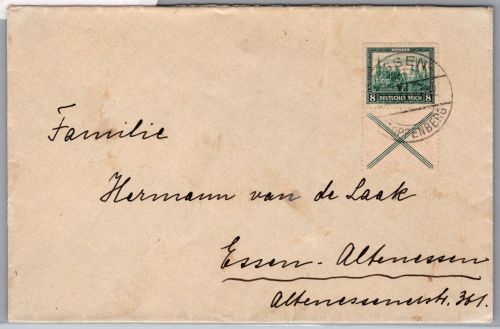 ESSEN
8 DEUTSCHES REICH 8
Familie
Hermann van de Laak
Essen-Altenessen
Altenessenerstr. 361.